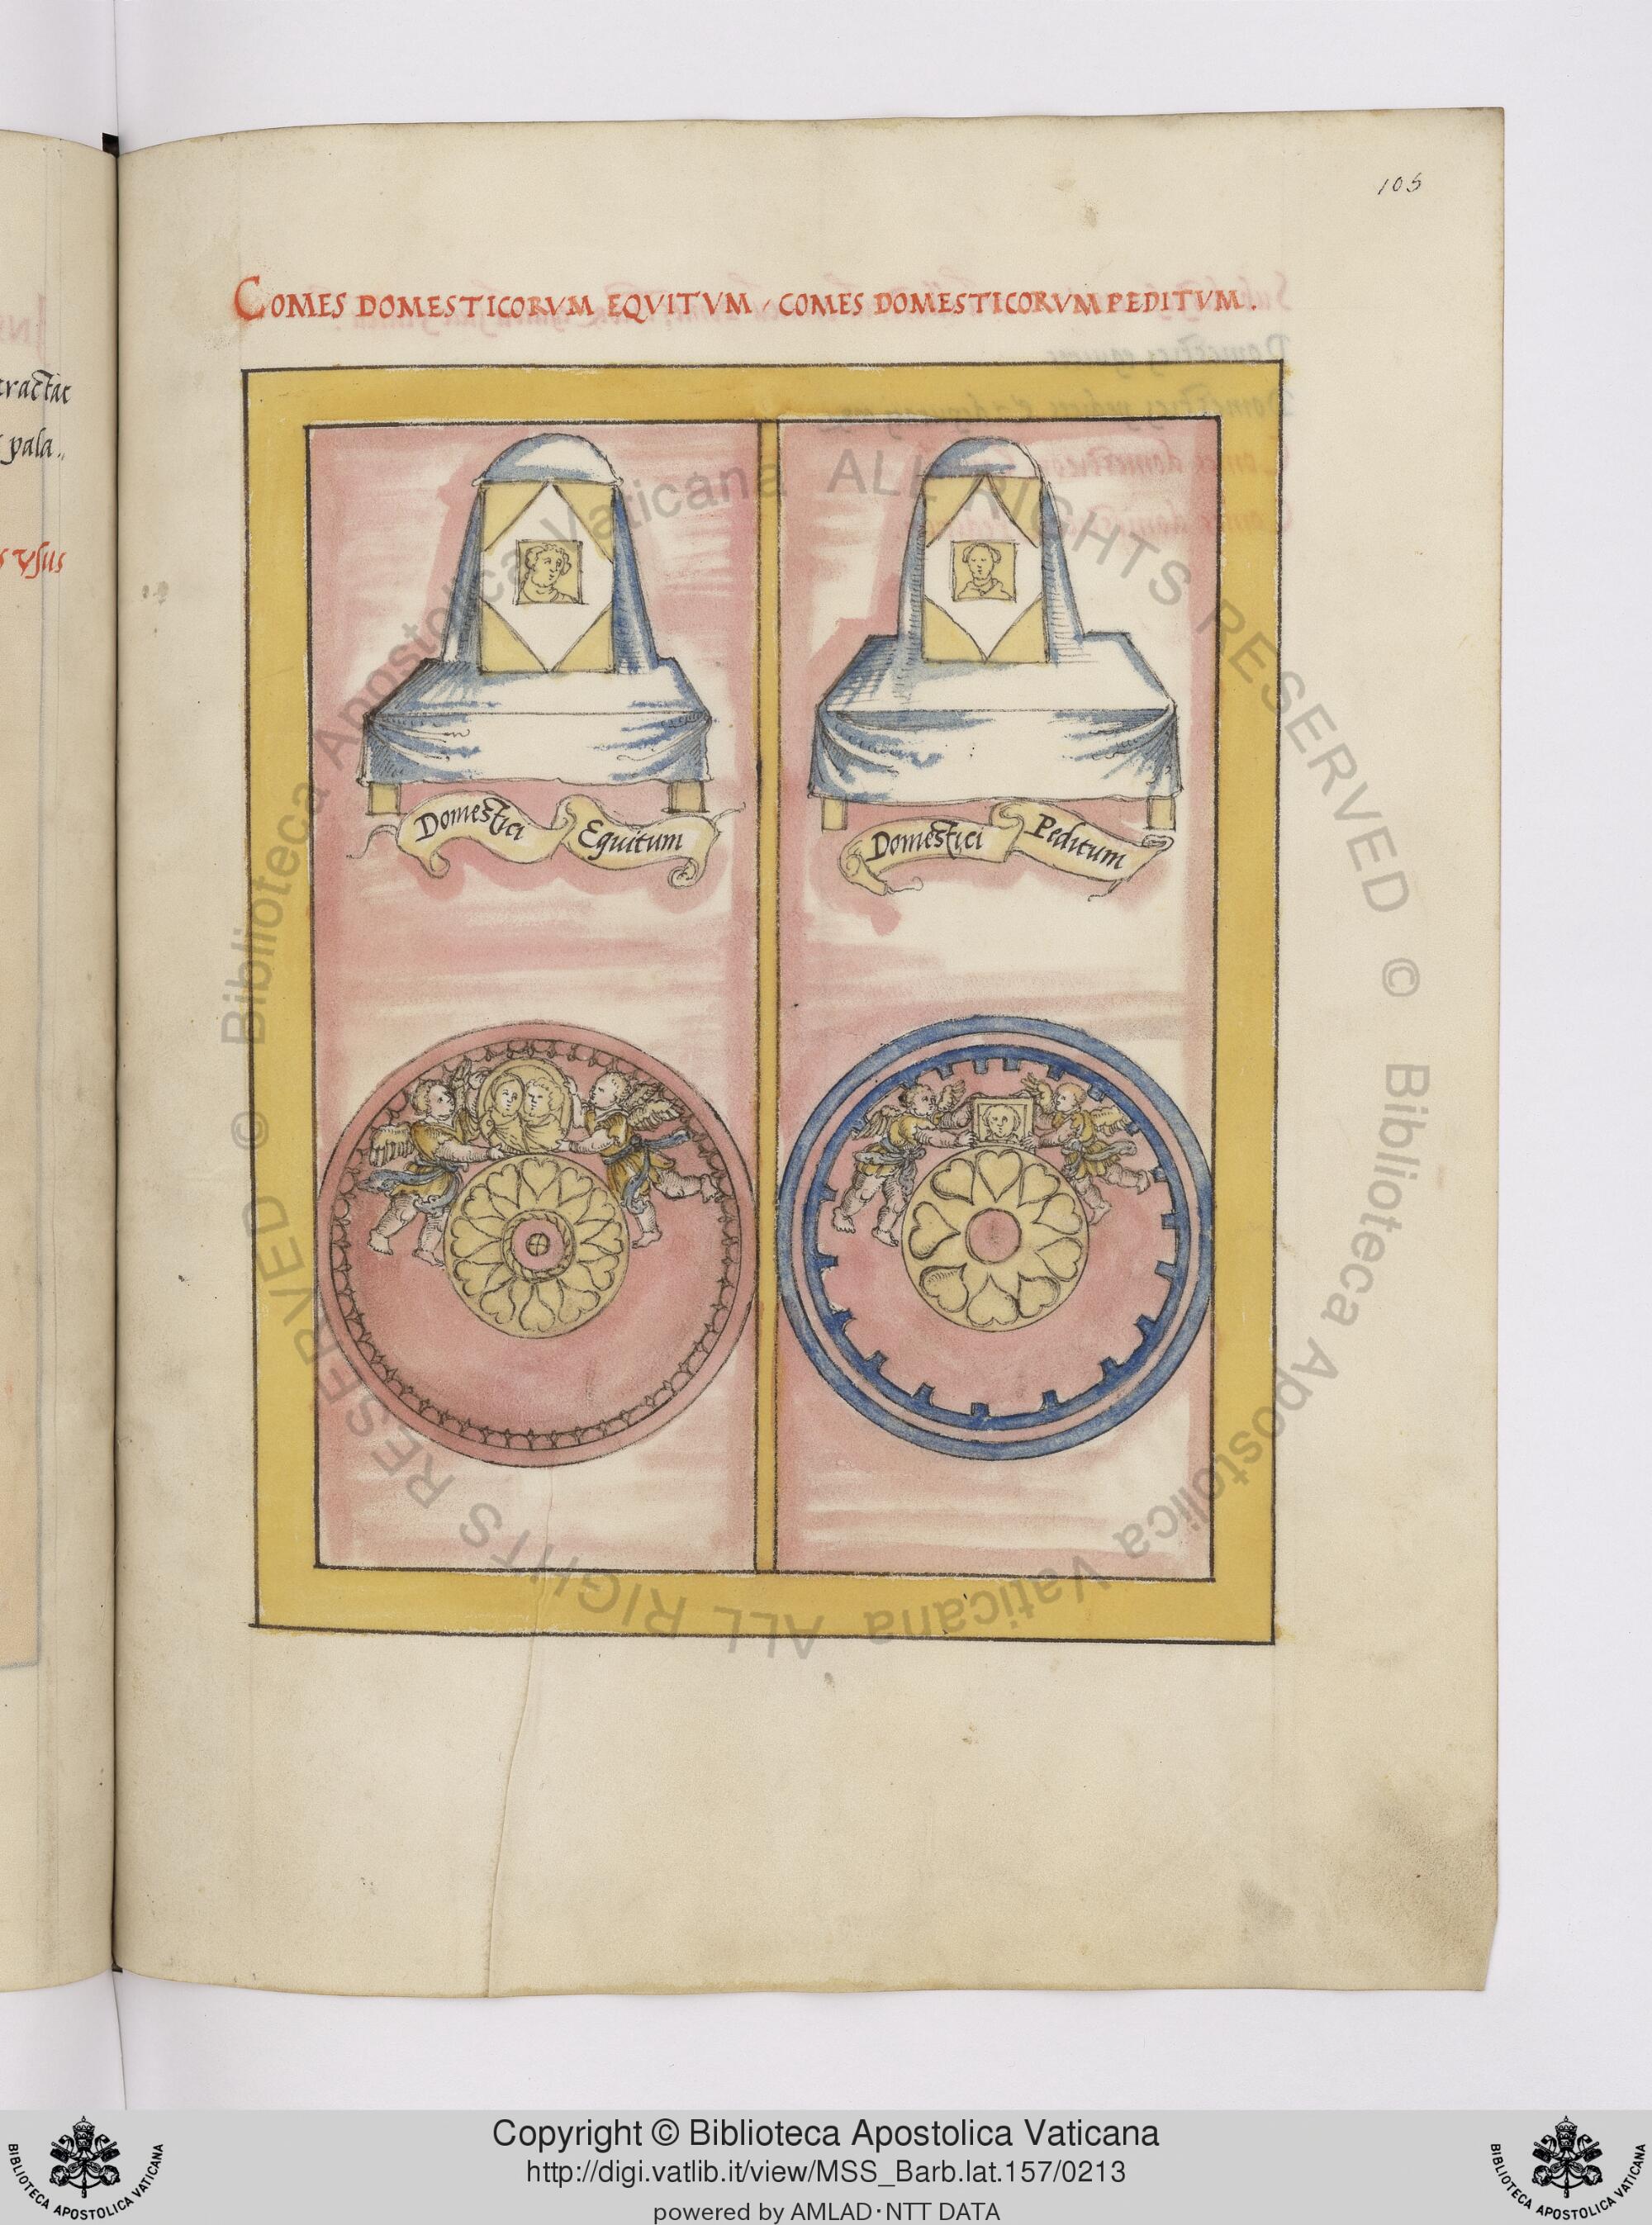 105
COMES DOMESTICORVM EQVITVM, COMES DOMESTICORVM PEDITVM.
Domestici Equitum
Domestici Peditum
tractat
pala..
s vsus
© Biblioteca Apostolica Vaticana ALL RIGHTS RESERVED © Biblioteca Apostolica Vaticana ALL RIGHTS RESERVED
BIBLIOTECA APOSTOLICA VATICANA
Copyright © Biblioteca Apostolica Vaticana
http://digi.vatlib.it/view/MSS_Barb.lat.157/0213
powered by AMLAD·NTT DATA
BIBLIOTECA APOSTOLICA VATICANA